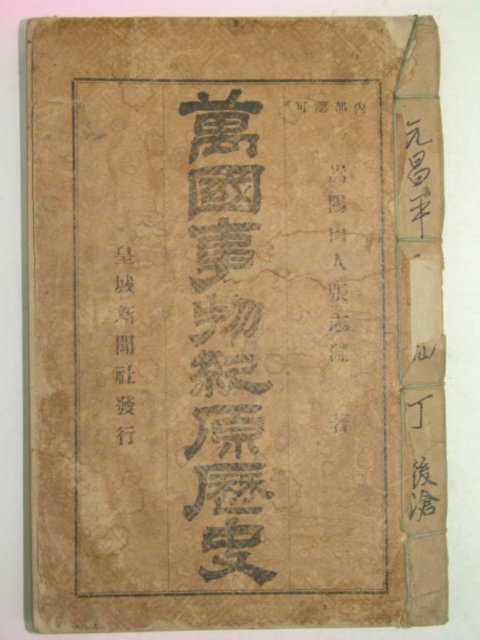 元昌平
丁
後滄
內部認可
嵩陽山人張志淵 著
萬國事物紀原歷史
皇城新聞社發行